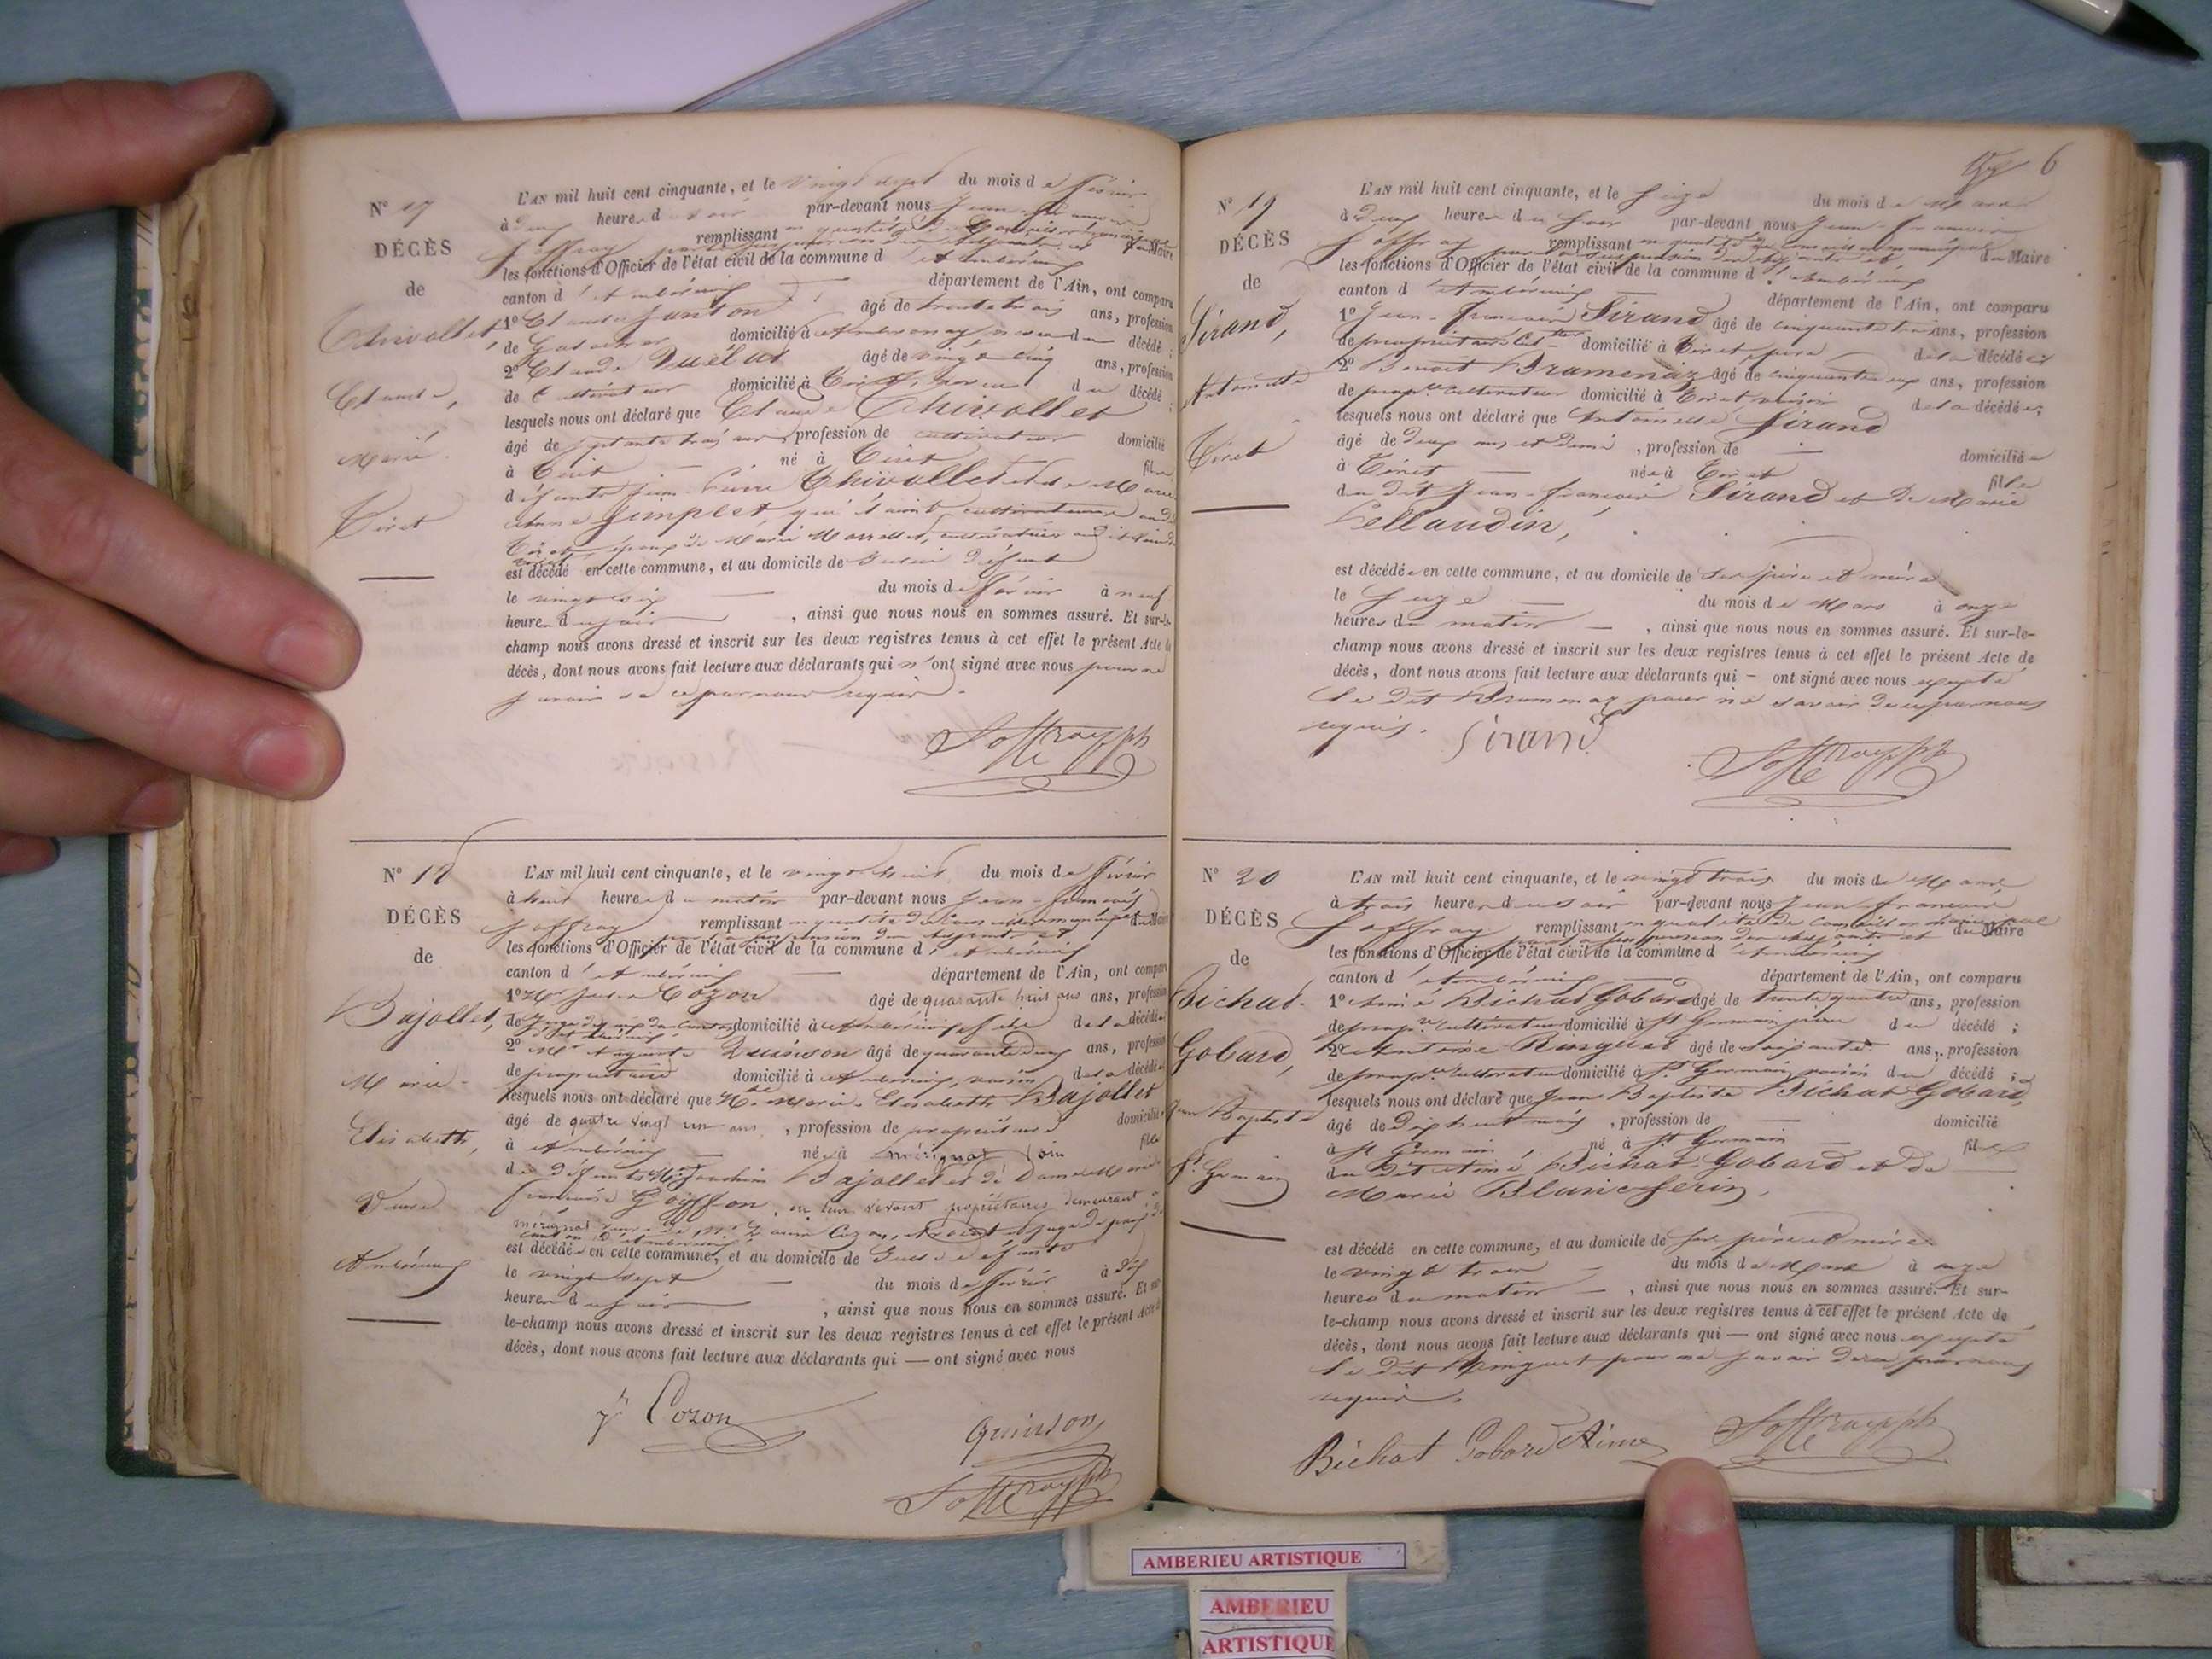 N° 17
DÉCÈS
de
Chivollet,
Claude,
Marié
Tiret
L'AN mil huit cent cinquante, et le vingt sept du mois de février
à deux heures du soir par-devant nous Jean-françois
Joffray remplissant en qualité de Conseiller municipal du Maire
les fonctions d'Officier de l'état civil de la commune d'Ambérieux
canton d'Ambérieux département de l'Ain, ont comparu
1° Claude Janton âgé de trente trois ans, profession
de domicilié à Ambronay du décédé ;
2° Claude âgé de vingt cinq ans, profession
de Cultivateur domicilié à Tiret, du décédé ;
lesquels nous ont déclaré que Claude Chivollet
âgé de septante trois ans, profession de cultivateur domicilié
à Tiret né à Tiret fils
défunts Jean-Pierre Chivollet et de Marie
Jimplet, qui étaient cultivateurs
Tiret époux de Marie cultivatrice
est décédé en cette commune, et au domicile de défunt
le vingt six du mois de février à neuf
heures du soir, ainsi que nous nous en sommes assuré. Et sur-le-
champ nous avons dressé et inscrit sur les deux registres tenus à cet effet le présent Acte de
décès, dont nous avons fait lecture aux déclarants qui n'ont signé avec nous pour ne
savoir de ce par nous requis.
N° 18
DÉCÈS
de
Bajollet,
Marie-
Elisabeth,
Veuve
Ambérieux
L'AN mil huit cent cinquante, et le vingt huit du mois de février
à huit heures du matin par-devant nous Jean-françois
Joffray remplissant en qualité de Conseiller municipal du Maire
les fonctions d'Officier de l'état civil de la commune d'Ambérieux
canton d'Ambérieux département de l'Ain, ont comparu
1° Cozon âgé de quarante huit ans ans, profession
de Juge de paix du Canton domicilié à Ambérieux, fils de la décédée
2° Mr Auguste Quinson âgé de quarante deux ans, profession
de propriétaire domicilié à Ambérieux, voisin de la décédée
lesquels nous ont déclaré que Marie-Elisabeth Bajollet
âgé de quatre vingt un ans, profession de propriétaire domiciliée
à Ambérieux née à Mérignat Ain fille
de défunts Mr Joachim Bajollet et de Dame Marie
françoise Goiffon, en leur vivant propriétaires demeurant à
mérignat veuve de Mr Cozon, Avocat et Juge de paix
canton d'Ambérieux
est décédée en cette commune, et au domicile de défunte
le vingt sept du mois de février à dix
heures du soir, ainsi que nous nous en sommes assuré. Et sur-
le-champ nous avons dressé et inscrit sur les deux registres tenus à cet effet le présent Acte de
décès, dont nous avons fait lecture aux déclarants qui — ont signé avec nous
Cozon
Quinson
6
N° 19
DÉCÈS
de
Sirand,
Antoinette
Tiret
L'AN mil huit cent cinquante, et le seize du mois de Mars
à deux heures du soir par-devant nous Jean-françois
Joffray remplissant en qualité de conseiller municipal du Maire
les fonctions d'Officier de l'état civil de la commune d'Ambérieux
canton d'Ambérieux département de l'Ain, ont comparu
1° Jean-françois Sirand âgé de cinquante trois ans, profession
de propriétaire Cult-teur domicilié à Tiret, père de la décédée
2° Benoit Bramenaz âgé de cinquante ans, profession
de prop.re cultivateur domicilié à Tiret voisin de la décédée ;
lesquels nous ont déclaré que Antoinette Sirand
âgé de deux ans et demi, profession de — domiciliée
à Tiret née à Tiret fille
du dit Jean-françois Sirand et de Marie
Pellaudin,
est décédée en cette commune, et au domicile de ses père et mère
le seize du mois de Mars à onze
heures du matin —, ainsi que nous nous en sommes assuré. Et sur-le-
champ nous avons dressé et inscrit sur les deux registres tenus à cet effet le présent Acte de
décès, dont nous avons fait lecture aux déclarants qui — ont signé avec nous excepté
le dit Bramenaz pour ne savoir de ce par nous
requis.
Sirand
N° 20
DÉCÈS
de
Bichat-
Gobard,
Jean Baptiste
St Germain
L'AN mil huit cent cinquante, et le vingt trois du mois de Mars
à trois heures du soir par-devant nous Jean-françois
Joffray remplissant en qualité de Conseiller municipal du Maire
les fonctions d'Officier de l'état civil de la commune d'Ambérieux
canton d'Ambérieux département de l'Ain, ont comparu
1° Aimé Bichat Gobard âgé de trente quatre ans, profession
de prop.re Cultivateur domicilié à St Germain père du décédé ;
2° Antoine âgé de soixante ans, profession
de prop.re Cultivateur domicilié à St Germain voisin du décédé ;
lesquels nous ont déclaré que Jean Baptiste Bichat Gobard,
âgé de dix huit mois, profession de — domicilié
à St Germain né à St Germain fils
du dit Aimé Bichat-Gobard et de
Marie Blanc-ferin,
est décédé en cette commune, et au domicile de ses père et mère
le vingt trois du mois de Mars à onze
heures du matin —, ainsi que nous nous en sommes assuré. Et sur-
le-champ nous avons dressé et inscrit sur les deux registres tenus à cet effet le présent Acte de
décès, dont nous avons fait lecture aux déclarants qui — ont signé avec nous excepté
le dit pour ne savoir de ce par nous
requis.
Bichat Gobard Aimé
AMBERIEU ARTISTIQUE
AMBERIEU
ARTISTIQUE